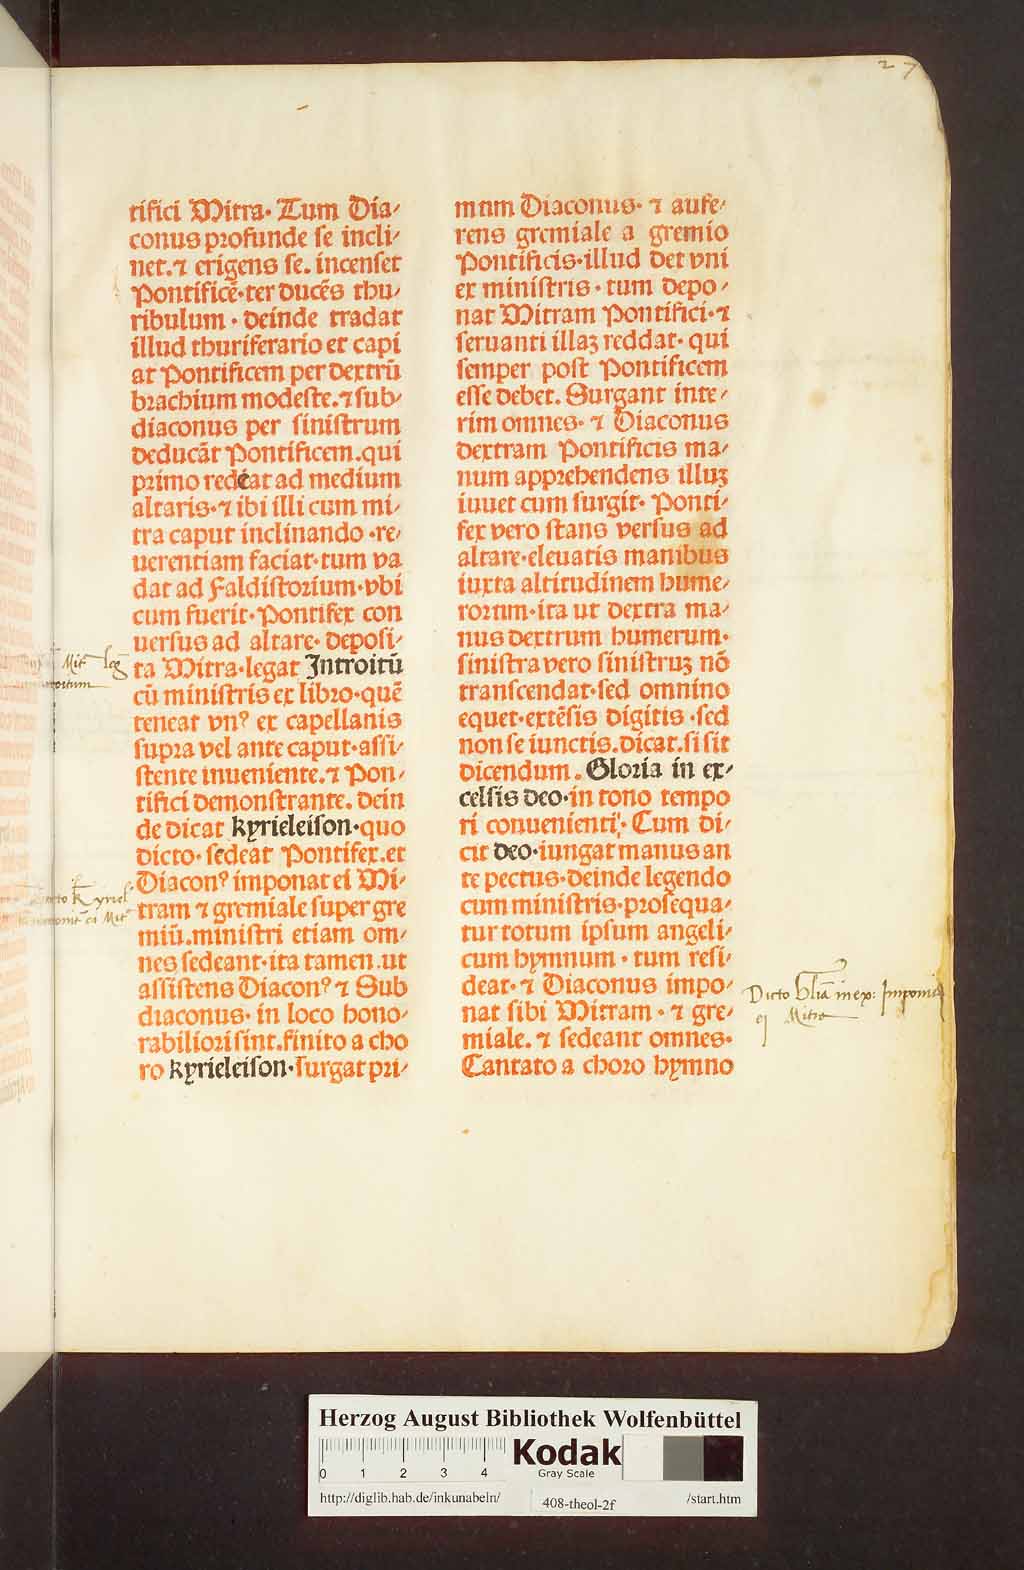 27
tifici Mitra· Tum Dia⸗
conus profunde se incli⸗
net.⁊ erigens se. incenset
Pontificē·ter ducēs thu⸗
ribulum · deinde tradat
illud thuriferario et capi
at Pontificem per dextrū
brachium modeste.⁊ sub⸗
diaconus per sinistrum
deducāt Pontificem.qui
primo redeat ad medium
altaris·⁊ ibi illi cum mi⸗
tra caput inclinando ·re⸗
uerentiam faciat·tum va
dat ad Faldistorium·vbi
cum fuerit·Pontifex con
uersus ad altare· deposi⸗
ta Mitra·legat Introitū
cū ministris ex libro·quē
teneat vnꝰ ex capellanis
supra vel ante caput·assi⸗
stente inueniente.⁊ Pon⸗
tifici demonstrante. dein
de dicat kyrieleison·quo
dicto· sedeat Pontifex.et
Diaconꝰ imponat ei Mi⸗
tram ⁊ gremiale super gre
miū.ministri etiam om⸗
nes sedeant·ita tamen.ut
assistens Diaconꝰ ⁊ Sub
diaconus· in loco hono⸗
rabiliori sint.finito a cho
ro kyrieleison·surgat pri⸗
mum Diaconus· ⁊ aufe⸗
rens gremiale a gremio
Pontificis·illud det vni
ex ministris · tum depo⸗
nat Mitram Pontifici·⁊
seruanti illaꝫ reddat· qui
semper post Pontificem
esse debet. Surgant inte⸗
rim omnes· ⁊ Diaconus
dextram Pontificis ma⸗
num apprehendens illuꝫ
iuuet cum surgit· Ponti⸗
fex vero stans versus ad
altare·eleuatis manibus
iuxta altitudinem hume⸗
rorum·ita ut dextra ma⸗
nus dextrum humerum·
sinistra vero sinistruꝫ nō
transcendat·sed omnino
equet·extēsis digitis ·sed
non se iunctis.dicat.si sit
dicendum. Gloria in ex⸗
celsis deo·in tono tempo
ri conuenienti· Cum di⸗
cit deo·iungat manus an
te pectus·deinde legendo
cum ministris·prosequa⸗
tur totum ipsum angeli⸗
cum hymnum · tum resi⸗
deat·⁊ Diaconus impo⸗
nat sibi Mitram · ⁊ gre⸗
miale. ⁊ sedeant omnes·
Cantato a choro hymno
Mit leg
Kyriel
ei Mit
Dicto Glīa in ex: Imponit
ei Mitrā
Herzog August Bibliothek Wolfenbüttel
0 1 2 3 4
Kodak
Gray Scale
http://diglib.hab.de/inkunabeln/ 408-theol-2f /start.htm